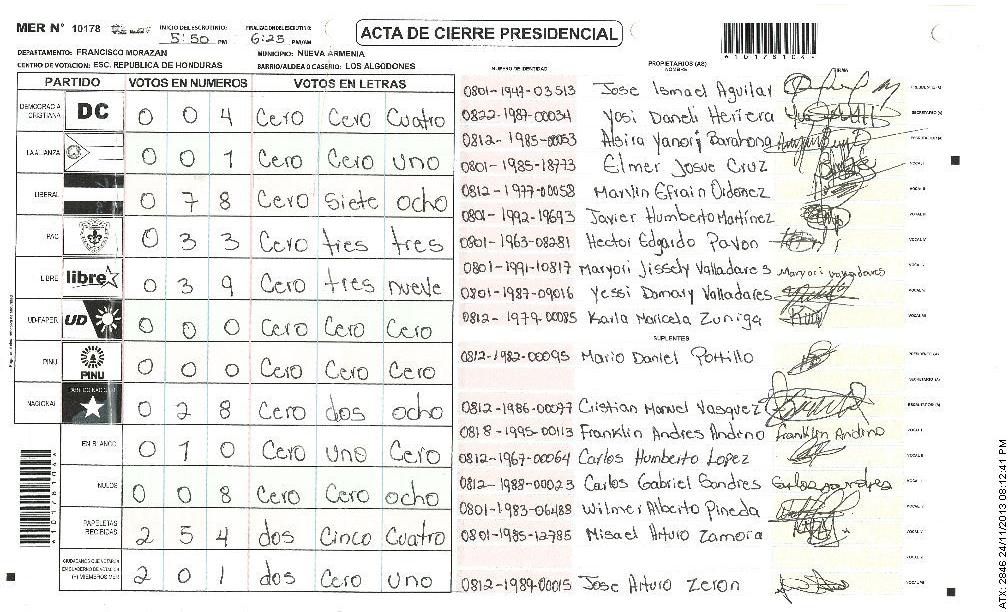 MER N° 10178 INICIO DEL ESCRUTINIO: 5:50 PM FINALIZACION DEL ESCRUTINIO: 6:25 PM/AM ACTA DE CIERRE PRESIDENCIAL
DEPARTAMENTO: FRANCISCO MORAZAN MUNICIPIO: NUEVA ARMENIA
CENTRO DE VOTACION: ESC. REPUBLICA DE HONDURAS BARRIO/ALDEA O CASERIO: LOS ALGODONES
PARTIDO VOTOS EN NUMEROS VOTOS EN LETRAS
DEMOCRACIA CRISTIANA DC 0 0 4 Cero Cero Cuatro
LA ALIANZA 0 0 1 Cero Cero uno
LIBERAL 0 7 8 Cero Siete ocho
PAC 0 3 3 Cero tres tres
LIBRE libre 0 3 9 Cero tres nueve
UD-FAPER UD 0 0 0 Cero Cero Cero
PINU PINU 0 0 0 Cero Cero Cero
NACIONAL 0 2 8 Cero dos ocho
EN BLANCO 0 1 0 Cero uno Cero
NULOS 0 0 8 Cero Cero ocho
PAPELETAS RECIBIDAS 2 5 4 dos Cinco Cuatro
2 0 1 dos Cero uno
NUMERO DE IDENTIDAD PROPIETARIOS (AS) NOMBRE FIRMA
0801-1947-03513 Jose Ismael Aguilar
0822-1987-00034 Yosi Daneli Herrera
0812-1985-00053 Alsira Yanori Barahona
0801-1985-18773 Elmer Josue Cruz
0812-1977-00058 Marvin Efrain Ordoñez
0801-1992-19693 Javier Humberto Martínez
0801-1963-08281 Hector Edgardo Pavon
0801-1991-10817 Maryori Jissely Valladares Maryori valladares
0801-1987-09016 Yessi Damary Valladares
0812-1979-00085 Karla Maricela Zuniga
SUPLENTES
0812-1982-00095 Mario Daniel Portillo
0812-1986-00077 Cristian Manuel Vasquez
0818-1995-00113 Franklin Andres Andino Franklin Andino
0812-1967-00064 Carlos Humberto Lopez
0812-1988-00023 Carlos Gabriel Sandres
0801-1983-06488 Wilmer Alberto Pineda
0801-1985-12785 Misael Arturo Zamora
0812-1989-00015 Jose Arturo Zeron
ATX-2846 24/11/2013 08:12:41 PM